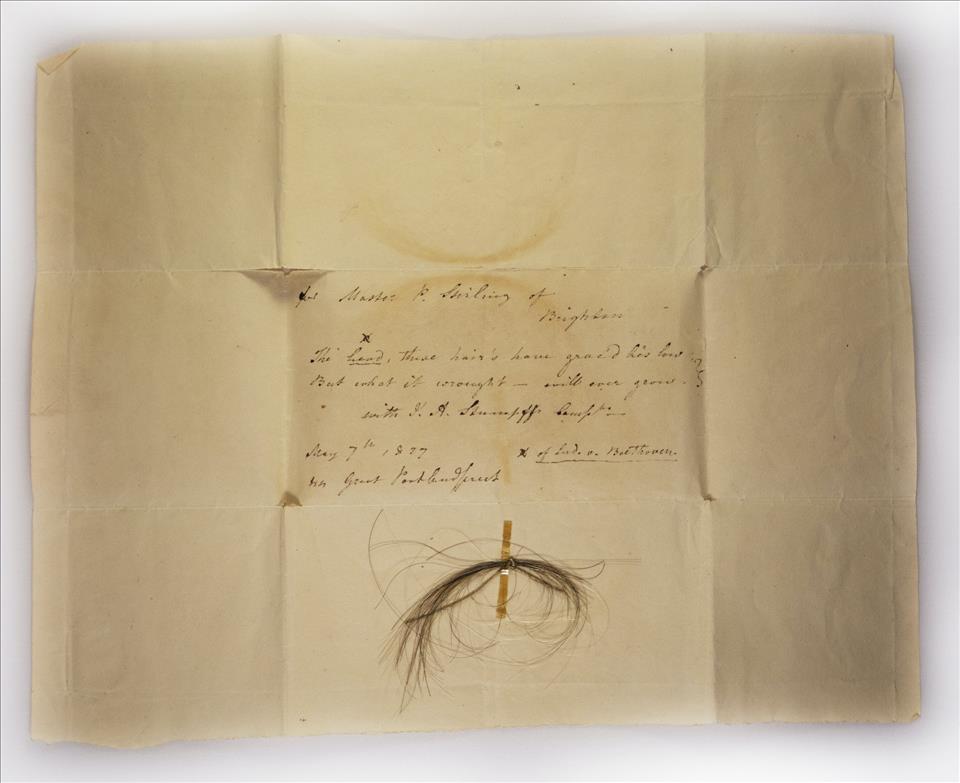 for Master P. Stirling of
Brighton
x
The head, these hair's have grac'd lies low
But what it wrought — will ever grow.
with J. A. Stumpff's Compts.—
May 7th, 1827
x of Lud. v. Beethoven.
Great Portlandstreet